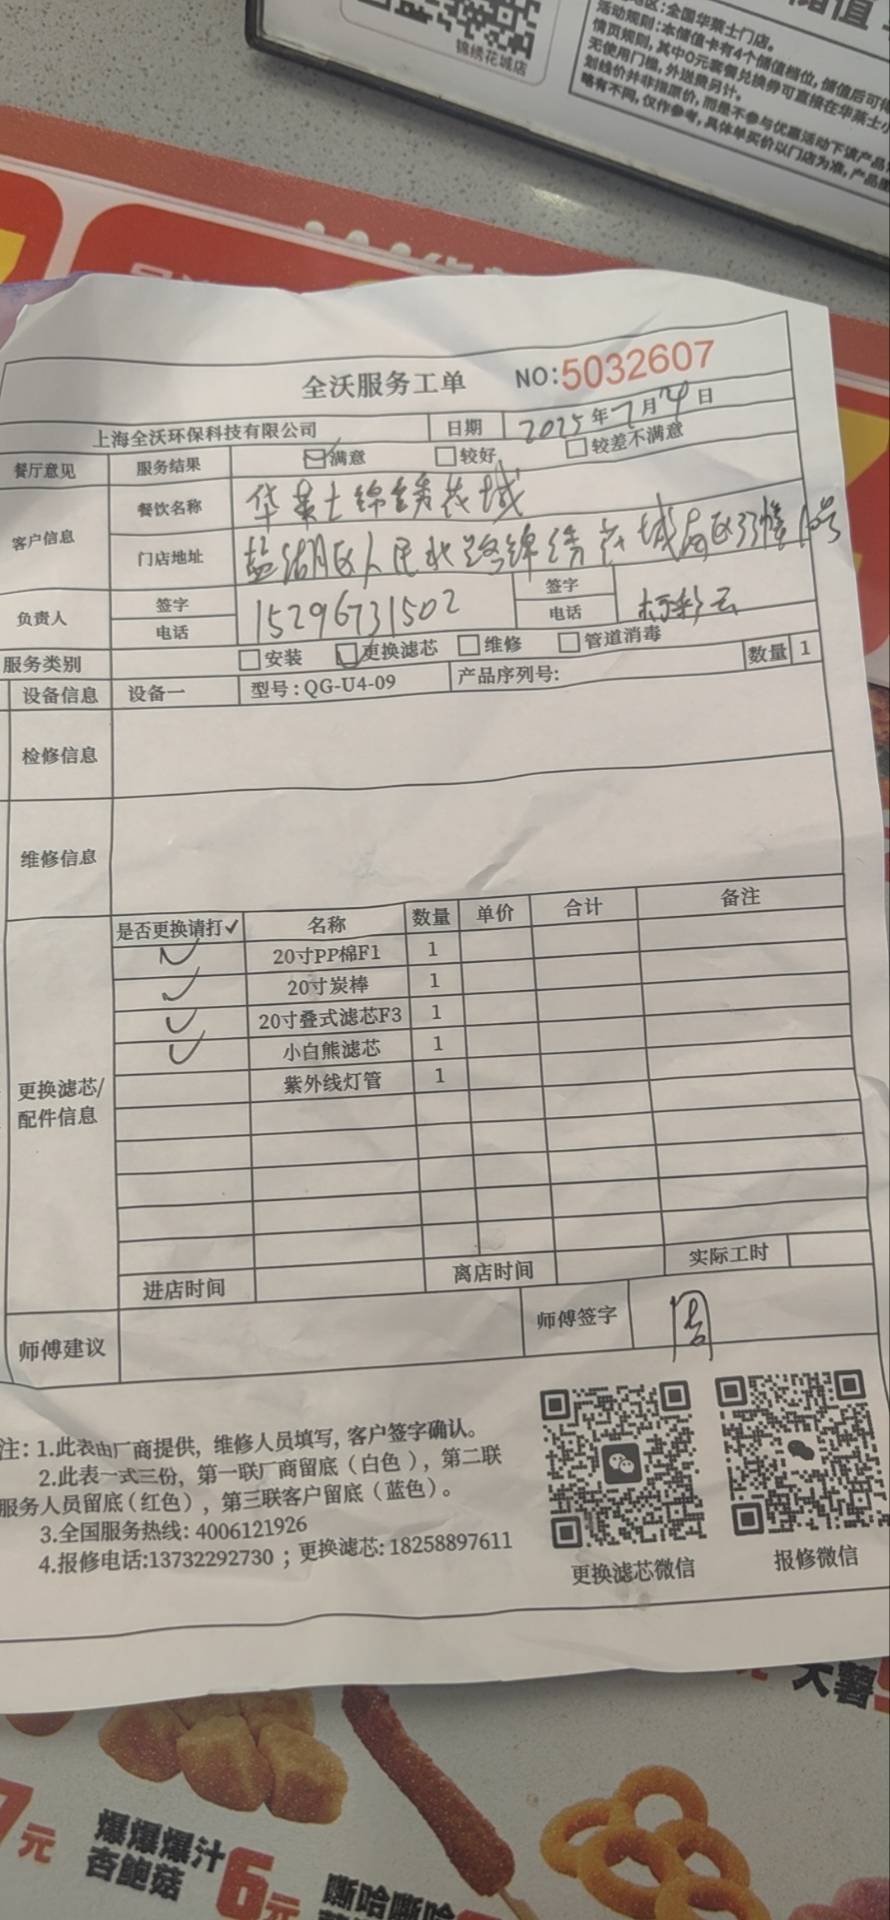 锦绣花城店
区:全国华莱士门店。
活动规则:本储值卡有4个储值档位,储值后可得
情页规则,其中0元套餐兑换券可直接在华莱士小
无使用门槛,外送费另计。
划线价并非指原价,而是不参与优惠活动下该产品
略有不同,仅作参考,具体单买价以门店为准,产品
全沃服务工单 NO:5032607
上海全沃环保科技有限公司 日期 2025年7月 日
餐厅意见 服务结果 满意 较好 较差不满意
客户信息 餐饮名称 华莱士锦绣花城
门店地址 盐湖区人民北路锦绣花城南区33幢 号
负责人 签字 15296731502 签字 彩云
电话 电话
服务类别 安装 更换滤芯 维修 管道消毒
设备信息 设备一 型号:QG-U4-09 产品序列号: 数量 1
检修信息
维修信息
更换滤芯/
配件信息
是否更换请打✓ 名称 数量 单价 合计 备注
✓ 20寸PP棉F1 1
✓ 20寸炭棒 1
✓ 20寸叠式滤芯F3 1
✓ 小白熊滤芯 1
紫外线灯管 1
进店时间 离店时间 实际工时
师傅建议 师傅签字 周
注:1.此表由厂商提供,维修人员填写,客户签字确认。
2.此表一式三份,第一联厂商留底(白色),第二联
服务人员留底(红色),第三联客户留底(蓝色)。
3.全国服务热线:4006121926
4.报修电话:13732292730;更换滤芯:18258897611
更换滤芯微信 报修微信
大薯
7元
爆爆爆汁
杏鲍菇
6元
嘶哈嘶哈